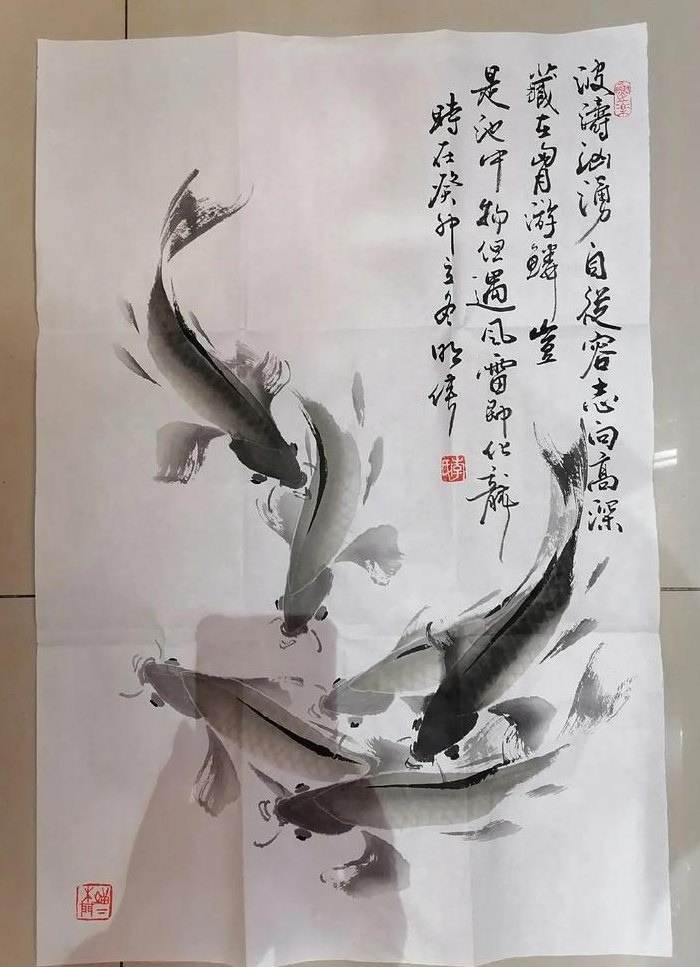 波濤汹湧自從容志向高深
藏在胷游鱗豈
是池中物但遇風雷即化龍
時在癸卯立冬明偉